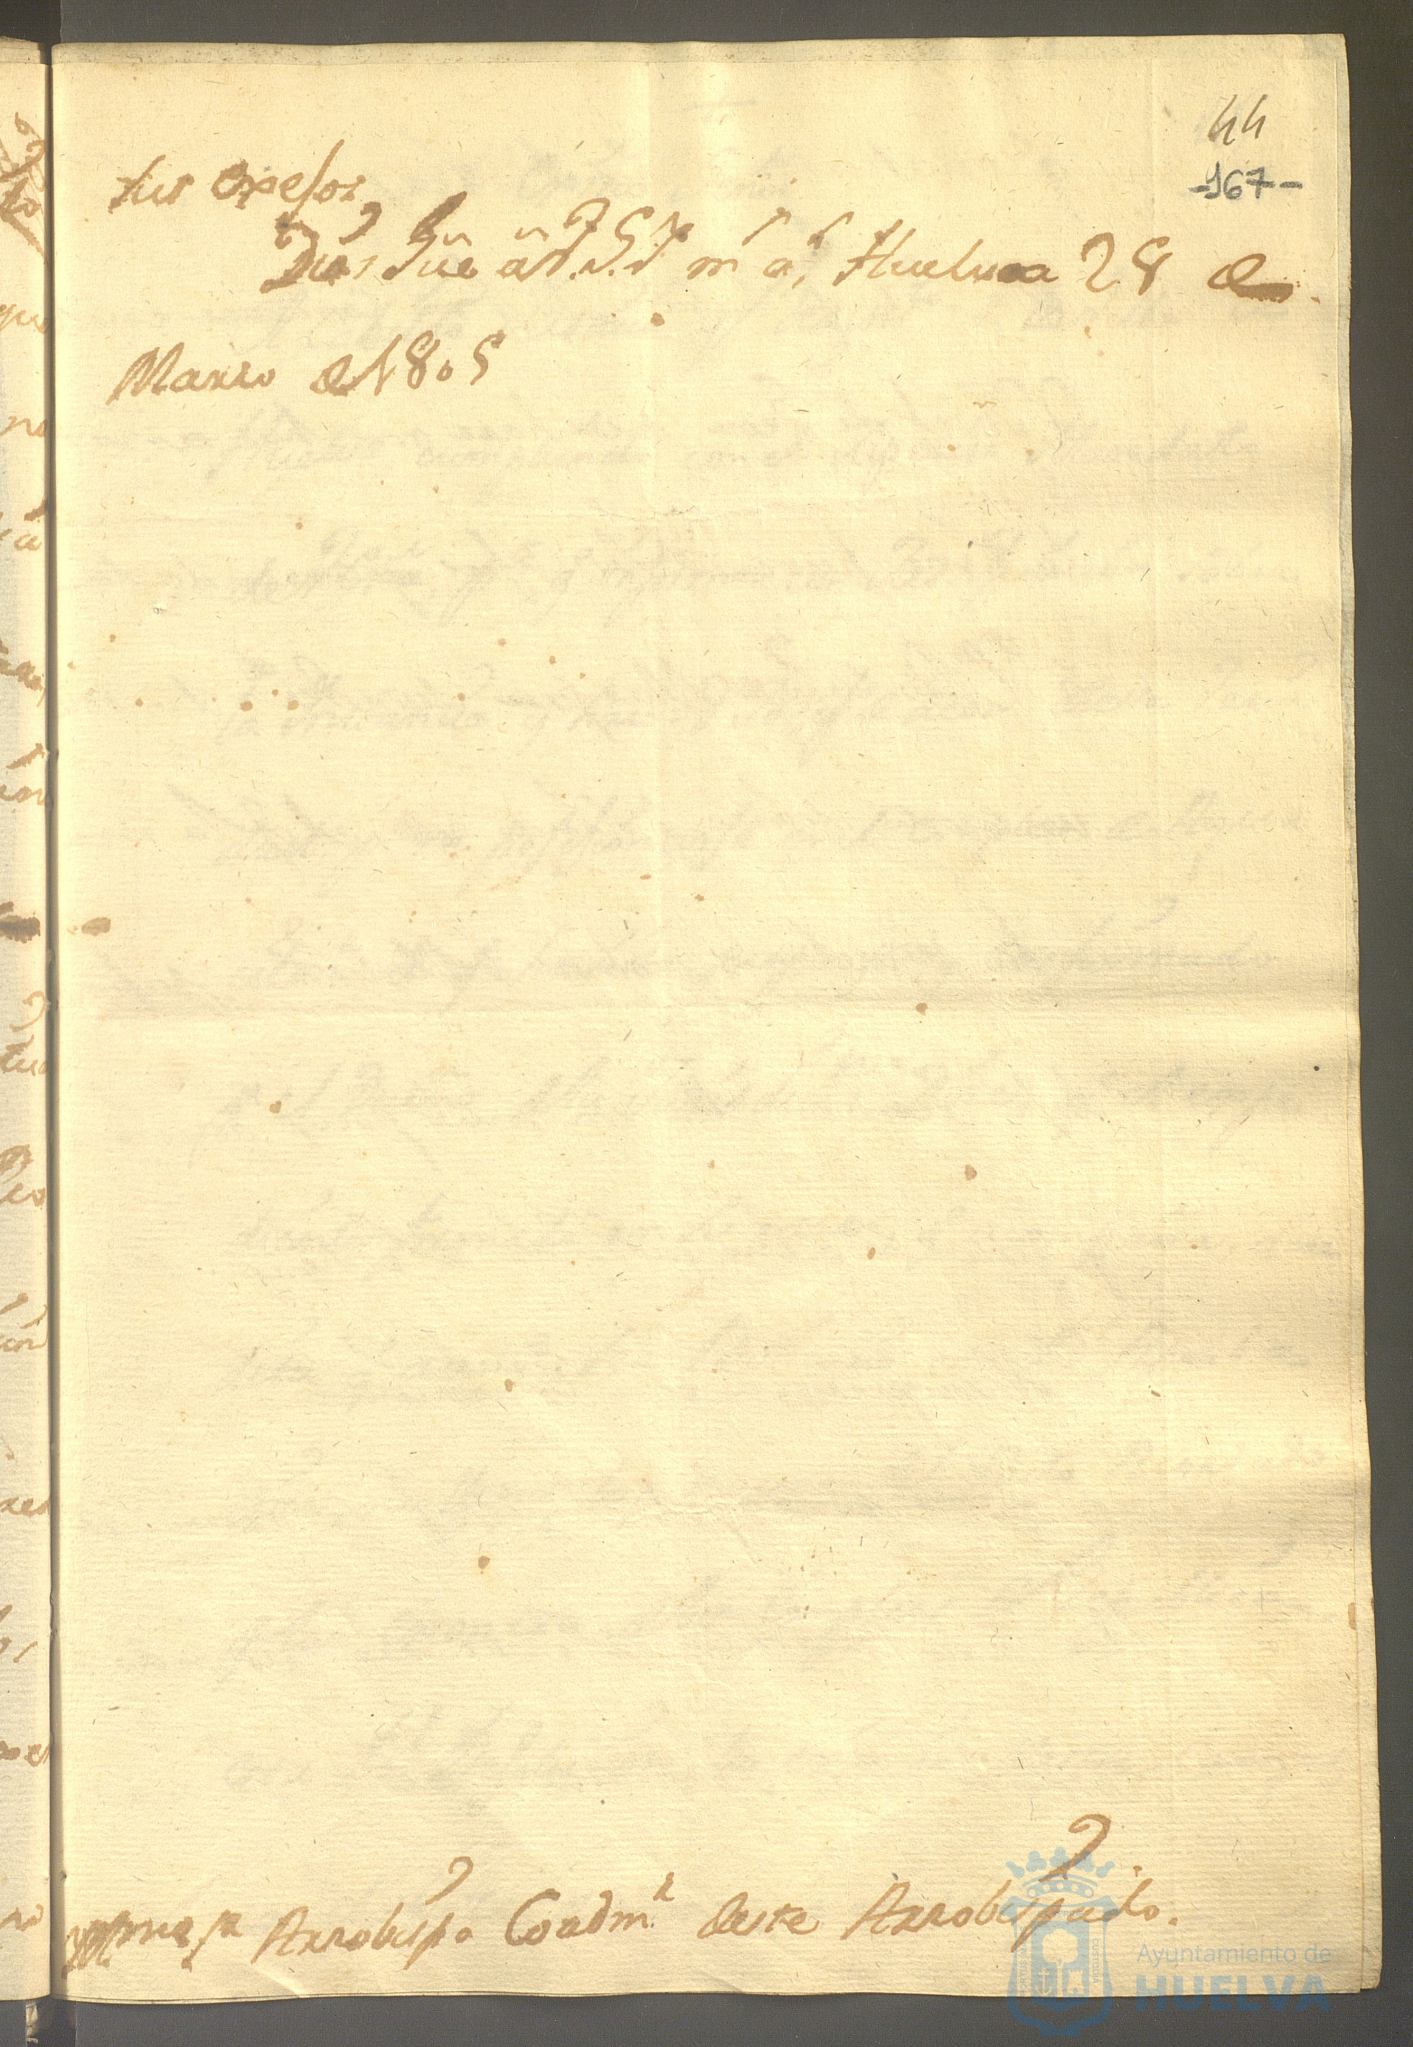 44
-167-
sus Expesos,
Dios Gūe ā V.S.Y. mˢ aˢ, Huelva 28 de
Marzo de 1805
Arrobispo Coadmʳ deste Arrobispado.
Ayuntamiento de
HUELVA